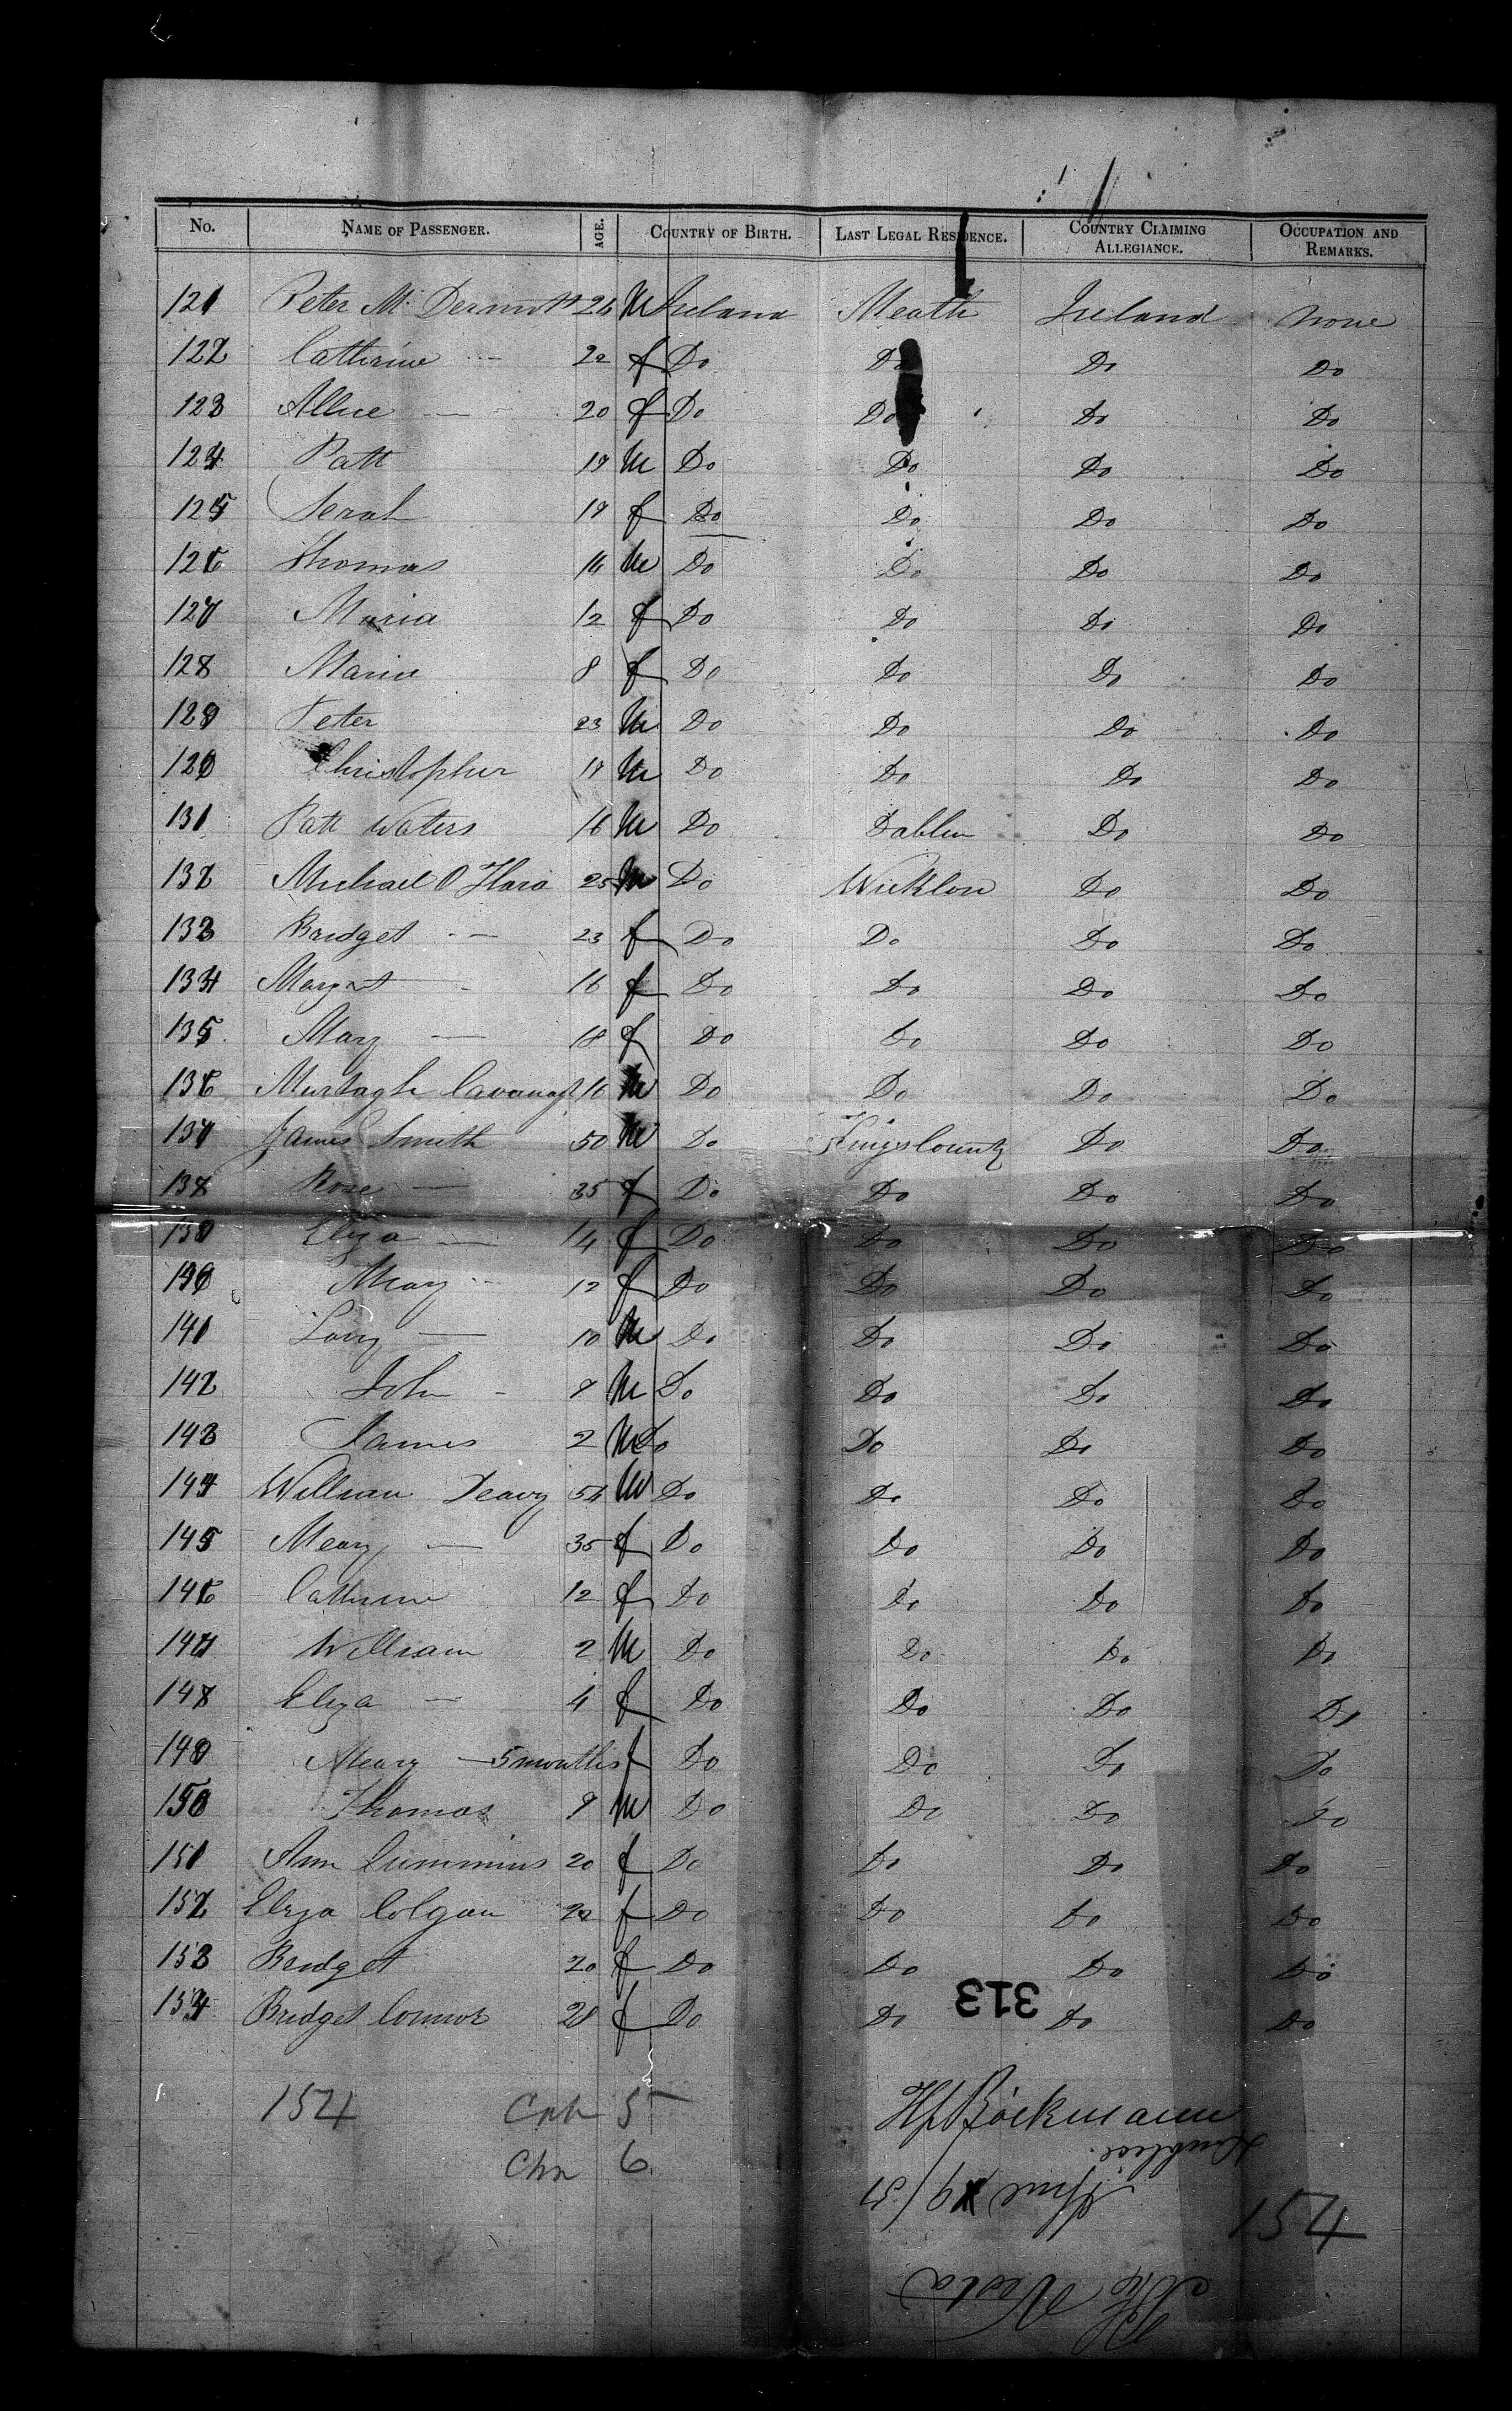 No. NAME OF PASSENGER. AGE. COUNTRY OF BIRTH. LAST LEGAL RESIDENCE. COUNTRY CLAIMING ALLEGIANCE. OCCUPATION AND REMARKS.
121 Peter Mc Dermott 26 M Ireland Meath Ireland none
122 Catherine 22 f Do Do Do Do
123 Allice 20 f Do Do Do Do
124 Patt 19 M Do Do Do Do
125 Serah 19 f Do Do Do Do
126 Thomas 16 M Do Do Do Do
127 Maria 12 f Do Do Do Do
128 Maria 8 f Do Do Do Do
129 Peter 23 M Do Do Do Do
120 Christopher 19 M Do Do Do Do
131 Patt Waters 16 M Do Dublin Do Do
132 Michael O Hara 25 M Do Wicklow Do Do
133 Bridget 23 f Do Do Do Do
134 Margrt 16 f Do Do Do Do
135 Mary 18 f Do Do Do Do
136 Murtagh Cavanagh 16 M Do Do Do Do
137 James Smith 50 M Do Kings County Do Do
138 Rose 35 f Do Do Do Do
139 Eliza 14 f Do Do Do Do
140 Meary 12 f Do Do Do Do
141 Larry 10 M Do Do Do Do
142 John 9 M Do Do Do Do
143 James 2 M Do Do Do Do
144 William Deavy 54 M Do Do Do Do
145 Meary 35 f Do Do Do Do
146 Catherine 12 f Do Do Do Do
147 William 2 M Do Do Do Do
148 Eliza 4 f Do Do Do Do
149 Meary 5 months f Do Do Do Do
150 Thomas 9 M Do Do Do Do
151 Ann Cummins 20 f Do Do Do Do
152 Eliza Colgan 22 f Do Do Do Do
153 Bridget 20 f Do Do Do Do
154 Bridget Connor 28 f Do Do Do Do
313
154 5
6
Böckmann
June 9/51
154
Vesta